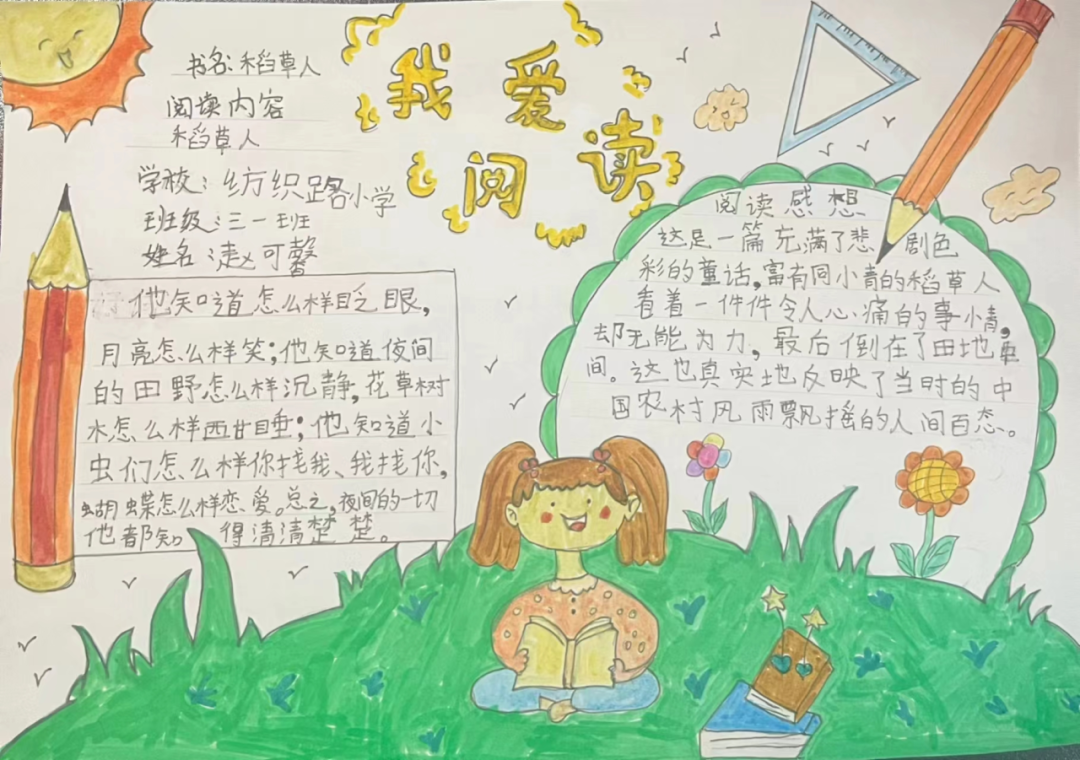 我爱
阅读
书名:稻草人
阅读内容
稻草人
学校:纺织路小学
班级:三一班
姓名:赵可馨
他知道怎么样眨眼,
月亮怎么样笑;他知道夜间
的田野怎么样沉静,花草树
木怎么样酣睡;他知道小
虫们怎么样你找我、我找你,
蝴蝶怎么样恋爱。总之,夜间的一切
他都知 得清清楚楚。
阅读感想
这是一篇充满了悲 剧色
彩的童话,富有同小情的稻草人
看着一件件令人心痛的事情,
却无能为力,最后倒在了田地
间。这也真实地反映了当时的中
国农村风雨飘摇的人间百态。